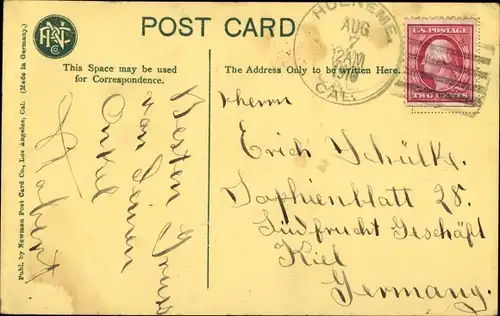 POST CARD
This Space may be used
for Correspondence.
The Address Only to be written Here.
HUENEME
AUG
7
12AM
CAL.
U.S. POSTAGE
TWO CENTS
Besten Gruss
von Deinem
Onkel
Robert
Herrn
Erich Schülke
Sophienblatt 28.
Südfrucht Geschäft
Kiel
Germany.
Publ. by Newman Post Card Co., Los Angeles, Cal. (Made in Germany).